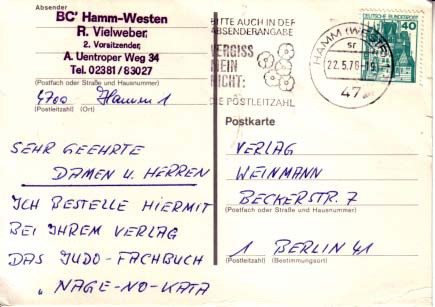 Absender
BC' Hamm-Westen
R. Vielweber
2. Vorsitzender,
A. Uentroper Weg 34
Tel. 02381/83027
(Postfach oder Straße und Hausnummer)
4700 Hamm 1
(Postleitzahl) (Ort)
SEHR GEEHRTE
DAMEN U. HERREN
ICH BESTELLE HIERMIT
BEI IHREM VERLAG
DAS JUDO-FACHBUCH
„NAGE-NO-KATA
BITTE AUCH IN DER
ABSENDERANGABE
VERGISS
MEIN
NICHT:
DIE POSTLEITZAHL
HAMM (WESTF)
22.5.78
47
DEUTSCHE BUNDESPOST
40
Postkarte
VERLAG
WEINMANN
BECKERSTR. 7
(Postfach oder Straße und Hausnummer)
1 BERLIN 41
(Postleitzahl) (Bestimmungsort)